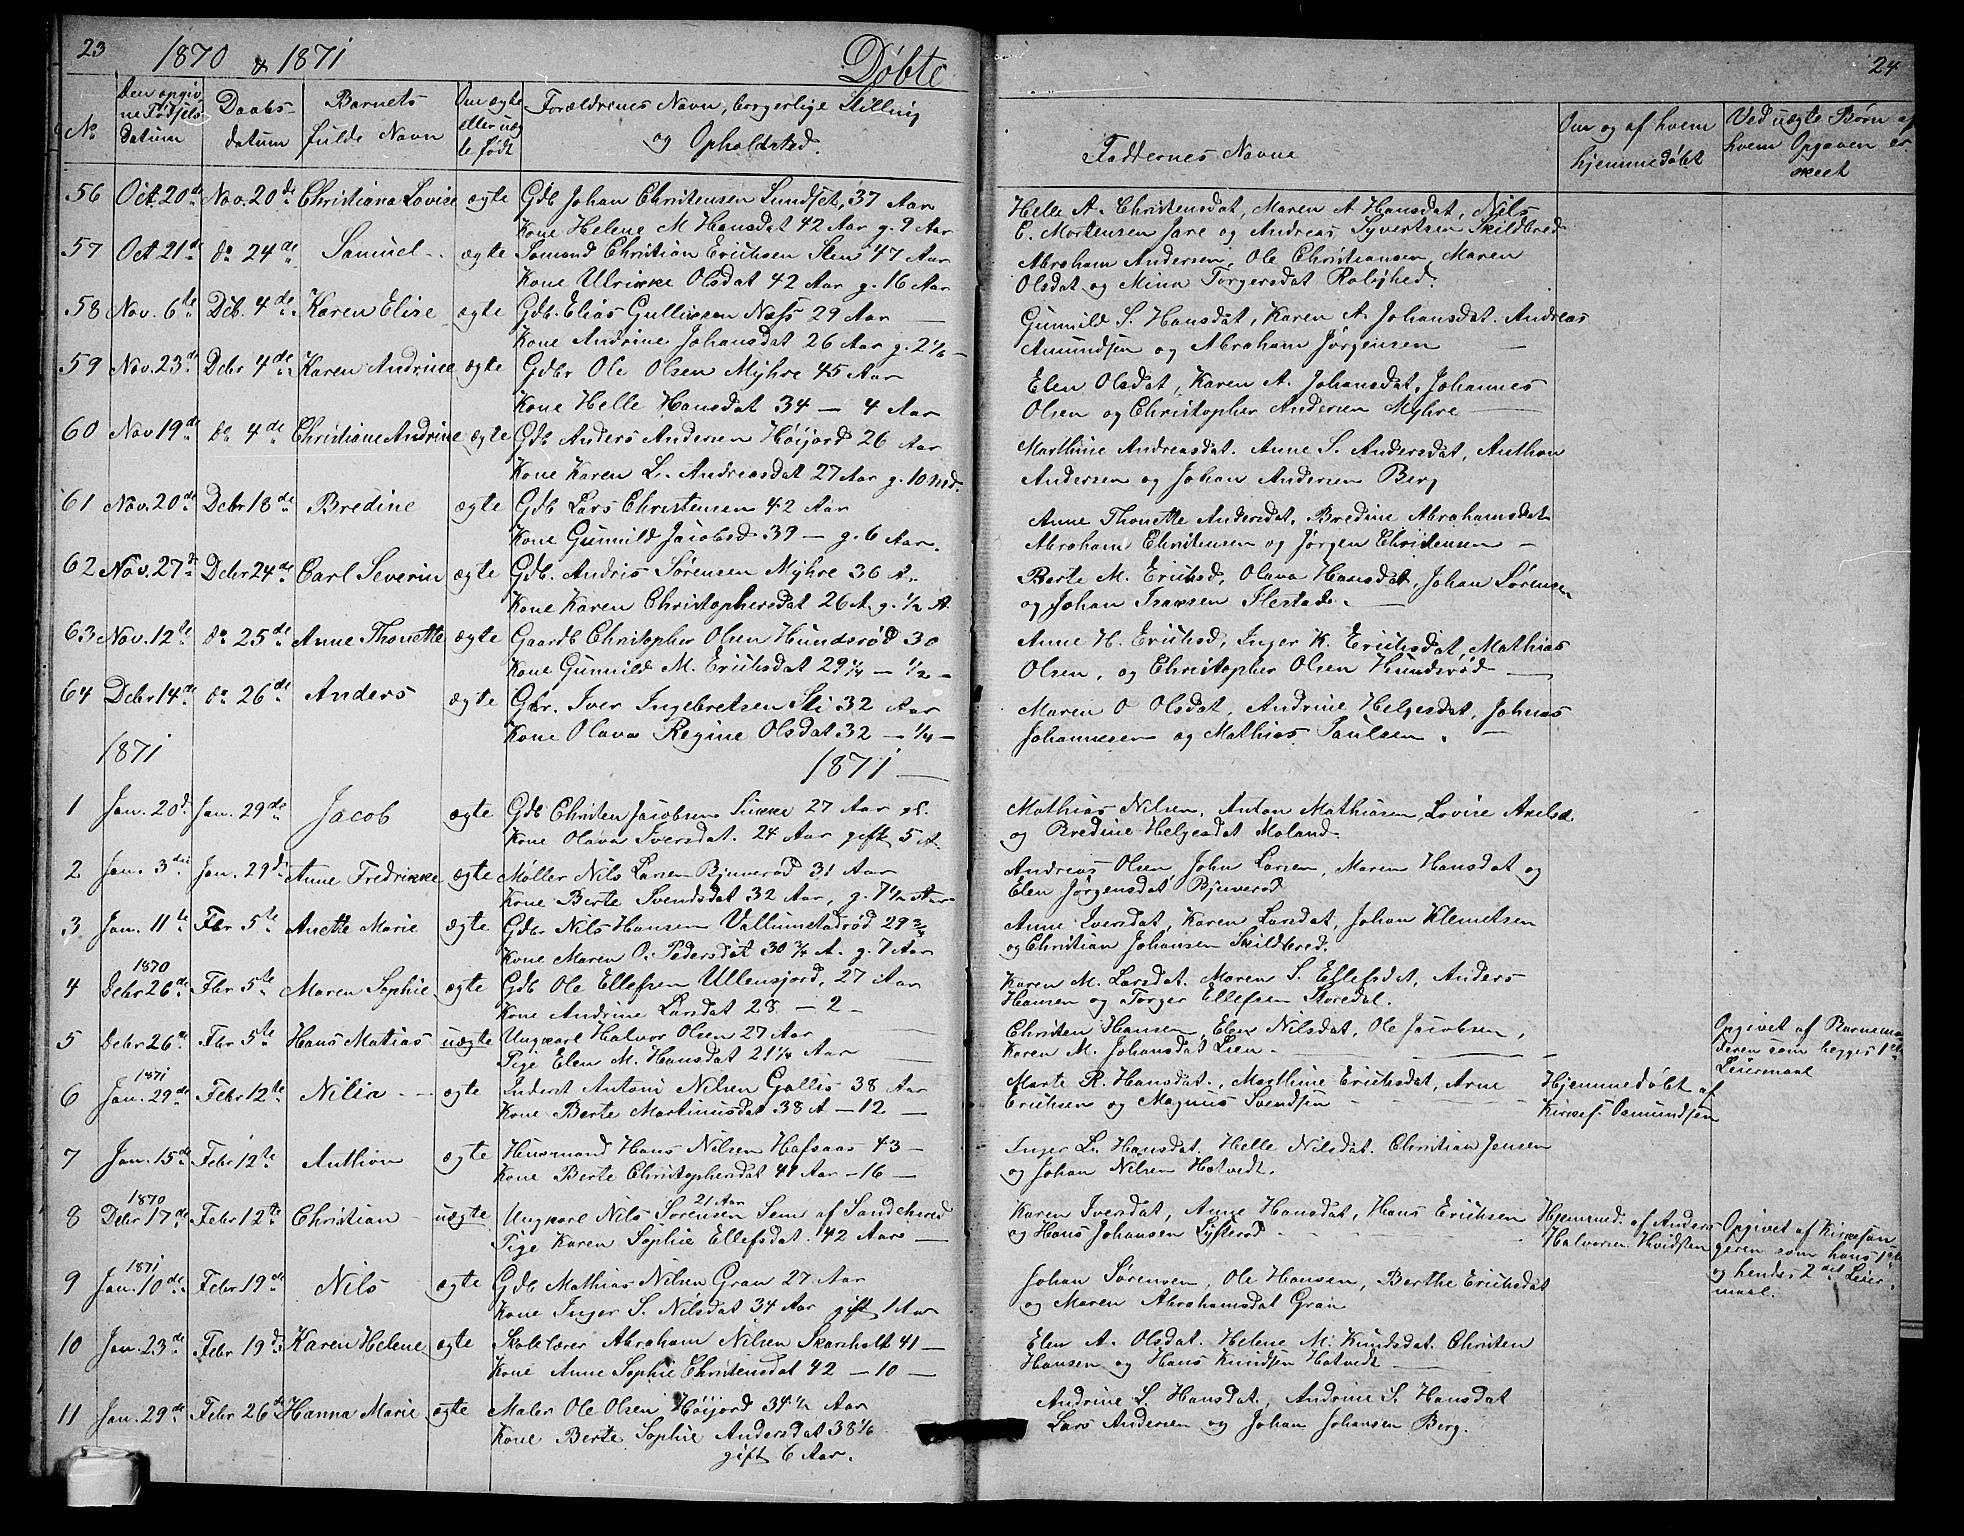 23 1870 & 1871 Døbte
No
Den opgivne Fødselsdatum
Daabsdatum
Barnets fulde Navn
Om ægte eller uægte født
Forældrenes Navn, borgerlige Stilling og Opholdsted.
56 Oct. 20de Nov. 20de Christiana Lovise ægte Gdb Johan Christensen Sundset, 37 Aar
Kone Helene M Hansdat 42 Aar g. 9 Aar
57 Oct 21de do 24de Samuel ægte Sømand Christian Erichsen Sten 47 Aar
Kone Ulrikke Olsdat 42 Aar g. 16 Aar
58 Nov. 6te Dcb. 4de Karen Elise ægte Gdb. Elias Gulliksen Næss 29 Aar
Kone Andrine Johansdat 26 Aar g. 2 1/6 —
59 Nov. 23de Debr 4de Karen Andrine ægte Gdbr Ole Olsen Myhre 45 Aar
Kone Helle Hansdat 34 — 4 Aar
60 Nov 19de do 4de Christiane Andrine ægte Gdb Anders Andersen Høijord 26 Aar
Kone Karen L. Andreasdat 27 Aar g. 10 Md.
61 Nov. 20de Debr 18de Bredine ægte Gdb Lars Christensen 42 Aar
Kone Gunnild Jacobsd 39 — g. 6 Aar.
62 Nov. 27de Debr 24de Carl Severin ægte Gdb. Andris Sørensen Myhre 36 A.
Kone Karen Christophersdat 26 A. g. 1/2 A.
63 Nov. 12te do 25de Anne Thonette ægte Gaardb Christopher Olsen Hundsrød 30
Kone Gunnild M. Erichsdat 29 1/4 — 1/2 —
64 Debr 14de do 26de Anders ægte Gbr. Iver Ingebretsen Sti 32 Aar
Kone Olava Regine Olsdat 32 — 1/4 —
1871 1871 —
1 Jan. 20d Jan. 29de Jacob ægte Gdb Christen Jacobsen 27 Aar
Kone Olava Iversdat. 24 Aar gift 5 A.
2 Jan. 3die Jan. 29d Anne Fredrikke ægte Møller Nils Larsen Bjuverød 31 Aar
Kone Berte Svendsdat 32 Aar, g. 7 1/2 Aar
3 Jan. 11te Fbr 5te Anette Marie ægte Gdbr Nils Hansen Vallumstadrød 29 3/4
Kone Maren O. Pedersdat 30 3/4 A. g. 7 Aar
1870
4 Debr 26de Fbr 5te Maren Sophie ægte Gdb Ole Ellefsen Ullensjord, 27 Aar
Kone Andrine Larsdat 28 — 2 —
5 Debr 26de Fbr 5te Hans Matias uægte Ungkarl Halvor Olsen 27 Aar
Pige Elen M. Hansdat 21 1/4 Aar
1871
6 Jan. 29de Febr 12te Nilia ægte Inderst Antoni Nilsen Gallis 38 Aar
Kone Berte Martinusdat 38 A — 12 —
7 Jan. 15de Febr 12te Anthon ægte Huusmand Hans Nilsen Hafsaas 43 —
Kone Berte Christophersdat 41 Aar — 16 —
1870 21 Aar
8 Debr 17de Febr 12te Christian uægte Ungkarl Nils Sørensen Sem af Sandeherred
Pige Karen Sophie Ellefsdat. 42 Aar —
1871
9 Jan. 10de Febr 19de Nils ægte Gdb Mathias Nilsen Gran 27 Aar
Kone Inger S. Nilsdat 34 Aar gift 1 Aar
10 Jan. 23de Febr 19d Karen Helene ægte Skolelærer Abraham Nilsen Skarsholt 41 —
Kone Anne Sophie Christensdat 42 — 10 —
11 Jan. 29de Febr 26de Hanna Marie ægte Maler Ole Olsen Høijord 34 1/2 Aar
Kone Berte Sophie Andersdat 38 1/6
gift 6 Aar.
24
Faddernes Navne
Om og af hvem hjemmedøbt
Ved uægte Børn af hvem Opgaven er skeet
Helle A. Christensdat, Maren A Hansdat, Nils
C. Mortensen Jare og Andreas Syvertsen Skildbred
Abraham Andersen, Ole Christiansen, Maren
Olsdat og Mina Torgersdat Roløphed.
Gunnild S. Hansdat, Karen A. Johansdat. Andreas
Amundsen og Abraham Jørgensen —
Elen Olsdat, Karen A. Johansdat, Johannes
Olsen og Christopher Andersen Myhre —
Marthine Andreasdat. Anne S. Andersdat, Anthon
Andersen og Johan Andersen Berg
Anne Thonette Andersdat, Bredine Abrahamsdat
Abraham Christensen og Jørgen Christensen —
Berte M. Erichsd, Olava Hansdat, Johan Sørensen
og Johan Isaksen Flestad. —
Anne H. Erichsd, Inger K. Erichsdat, Mathias
Olsen, og Christopher Olsen Hundsrød —
Maren O Olsdat, Andrine Helgesdat, Johnas
Johannesen og Mathias Paulsen. —
Mathias Nilsen, Anton Mathiasen, Lovise Axelsd.
og Bredine Helgesdat Moland.
Andreas Olsen John Larsen, Maren Hansdat og
Elen Jørgensdat Bjuverød
Anne Iversdat, Karen Larsdat, Johan Klemetsen
og Christian Johansen Skildbred.
Karen M. Larsdat. Maren S. Ellefsdat, Anders
Hansen og Torger Ellefsen Storedal.
Christen Hansen, Elen Nilsdat, Ole Jacobsen,
Karen M. Johansdat Lien — Opgivet af Barnemoderen som begges 1ste Leiermaal
Marte R. Hansdat., Marthine Erichsdat, Arne
Erichsen og Magnus Svendsen — Hjemmedøbt af Kirkes. Osmundsen
Inger L. Hansdat. Helle Nilsdat. Christian Jensen
og Johan Nilsen Hotvedt.
Karen Iversdat, Anne Hansdat, Hans Erichsen
og Hans Johansen Lysterød — Hjemmed. af Anders Halvorsen Hvidsten
Opgivet af Kirkesangeren som hans 1ste og hendes 2det Leiermaal.
Johan Sørensen, Ole Hansen, Berthe Erichsdat
og Maren Abrahamsdat Gran
Elen A. Olsdat. Helene M. Knudsdat. Christen
Hansen og Hans Knudsen Hotvedt —
Andrine L. Hansdat, Andrine S. Hansdat
Lars Andersen og Johan Johansen Berg.